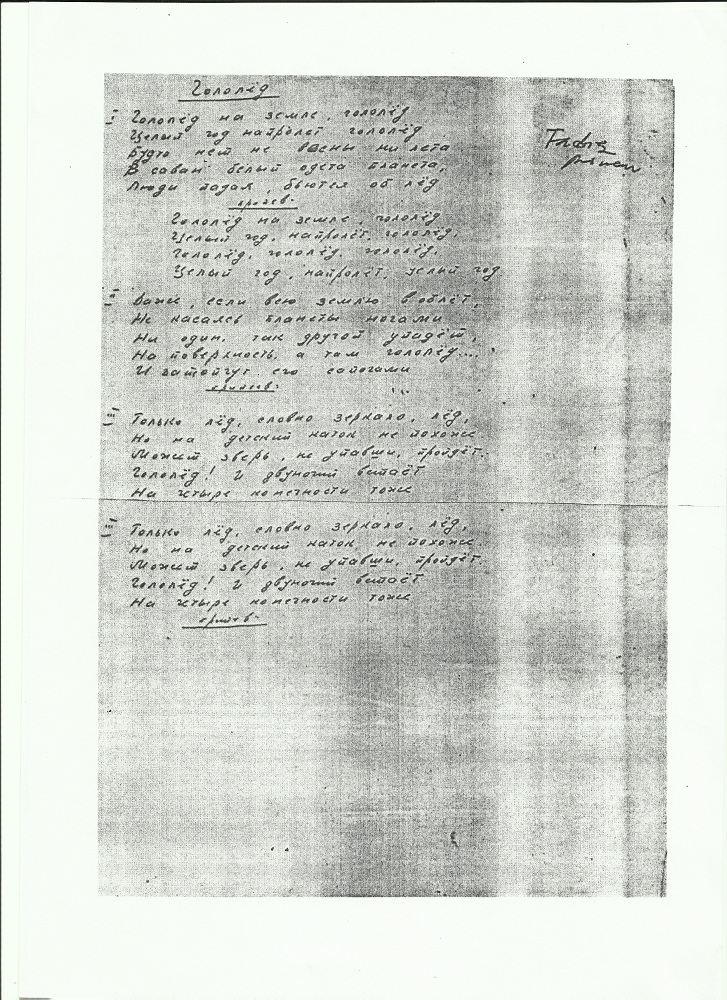 Гололёд
I Гололёд на земле, гололёд
Целый год напролёт гололёд
Будто нет не весны ни лета
В саван белый одета планета,
Люди падая, бьются об лёд
припев-
Гололёд на земле, гололёд
Целый год, напролёт, гололёд,
Гололёд, гололёд, гололёд,
Целый год, напролёт, целый год
II Даже, если всю землю в облёт,
Не касаясь планеты ногами
Ни один, так другой упадёт,
На поверхность, а там гололёд...
И затопчут его сапогами
припев-
III Только лёд, словно зеркало, лёд,
Но на детский каток не похоже.
Может зверь, не упавши, пройдёт.
Гололёд! И двуногий
На четыре конечности тоже
III Только лёд, словно зеркало, лёд,
Но на детский каток не похоже.
Может зверь, не упавши, пройдёт.
Гололёд! И двуногий
На четыре конечности тоже
припев-